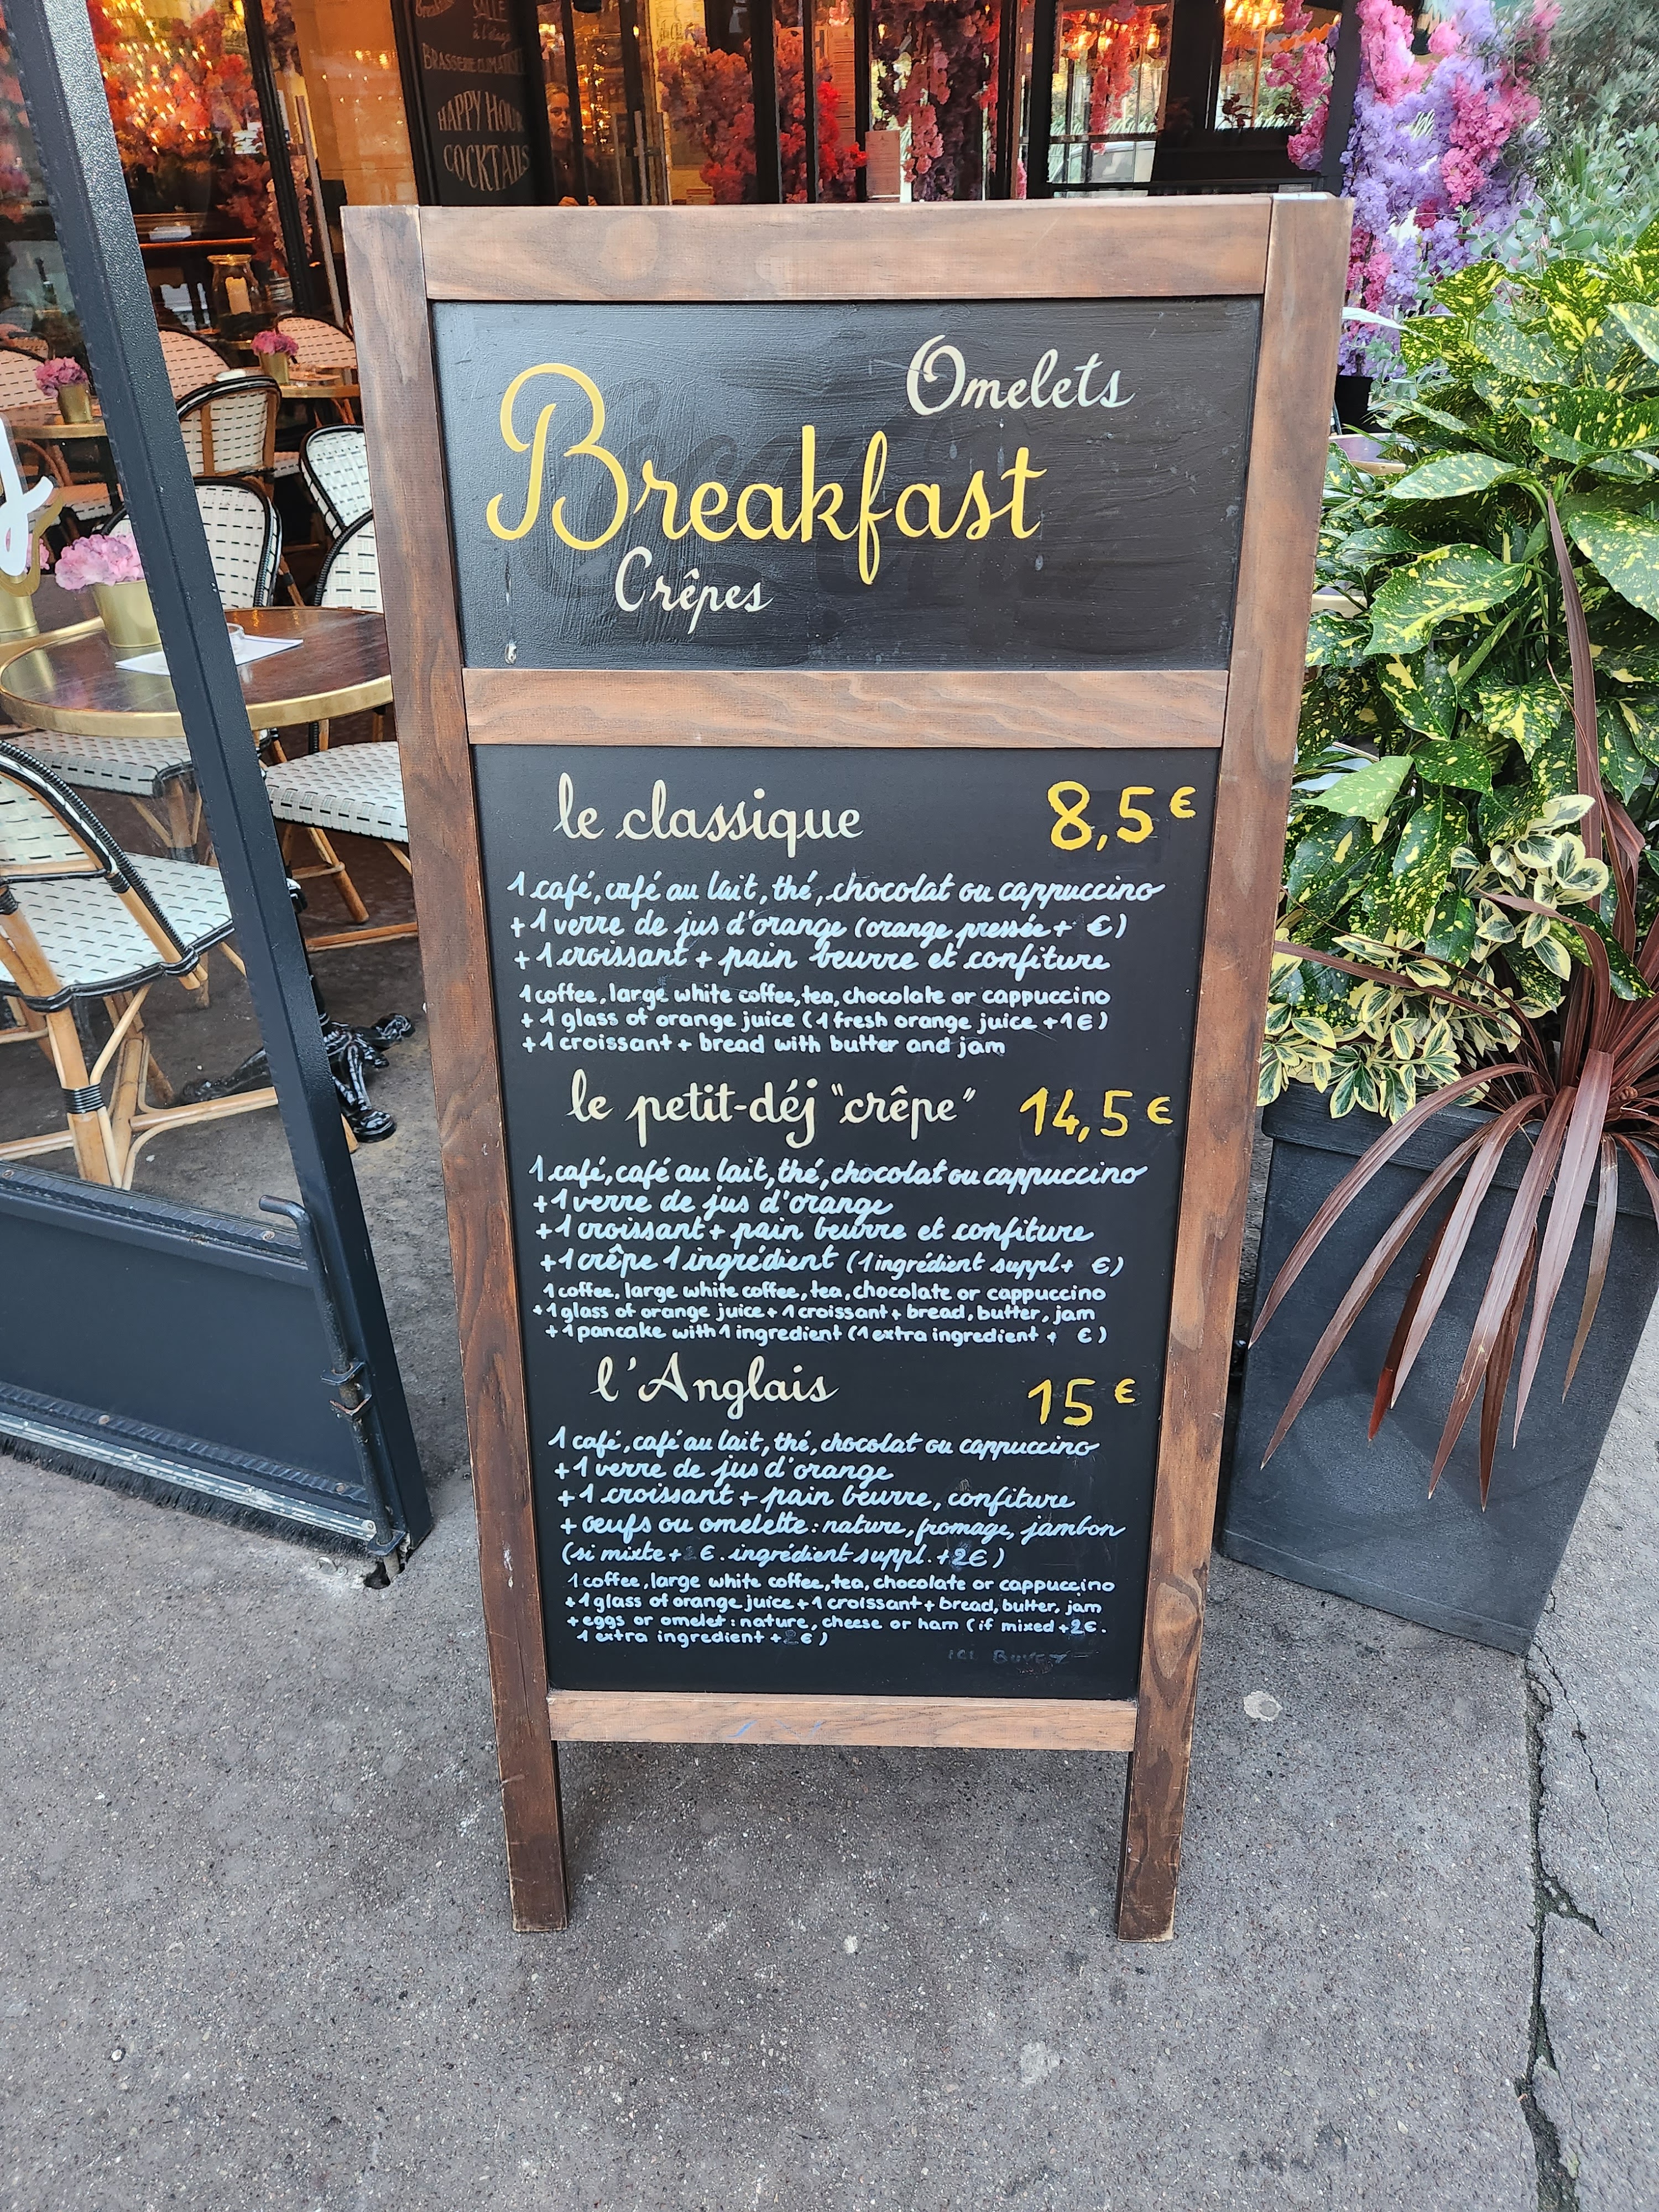 SALLE
à l'étage
BRASSERIE CLIMATISÉE
HAPPY HOUR
COCKTAILS
Omelets
Breakfast
Crêpes
le classique 8,5€
1 café, café au lait, thé, chocolat ou cappuccino
+ 1 verre de jus d'orange (orange pressée + €)
+ 1 croissant + pain beurre et confiture
1 coffee, large white coffee, tea, chocolate or cappuccino
+ 1 glass of orange juice (1 fresh orange juice +1€)
+ 1 croissant + bread with butter and jam
le petit-déj "crêpe" 14,5€
1 café, café au lait, thé, chocolat ou cappuccino
+ 1 verre de jus d'orange
+ 1 croissant + pain beurre et confiture
+ 1 crêpe 1 ingrédient (1 ingrédient suppl + €)
1 coffee, large white coffee, tea, chocolate or cappuccino
+ 1 glass of orange juice + 1 croissant + bread, butter, jam
+ 1 pancake with 1 ingredient (1 extra ingredient + €)
l'Anglais 15€
1 café, café au lait, thé, chocolat ou cappuccino
+ 1 verre de jus d'orange
+ 1 croissant + pain beurre, confiture
+ œufs ou omelette : nature, fromage, jambon
(si mixte + € . ingrédient suppl. +2€)
1 coffee, large white coffee, tea, chocolate or cappuccino
+ 1 glass of orange juice + 1 croissant + bread, butter, jam
+ eggs or omelet : nature, cheese or ham (if mixed +2€.
1 extra ingredient +2€)